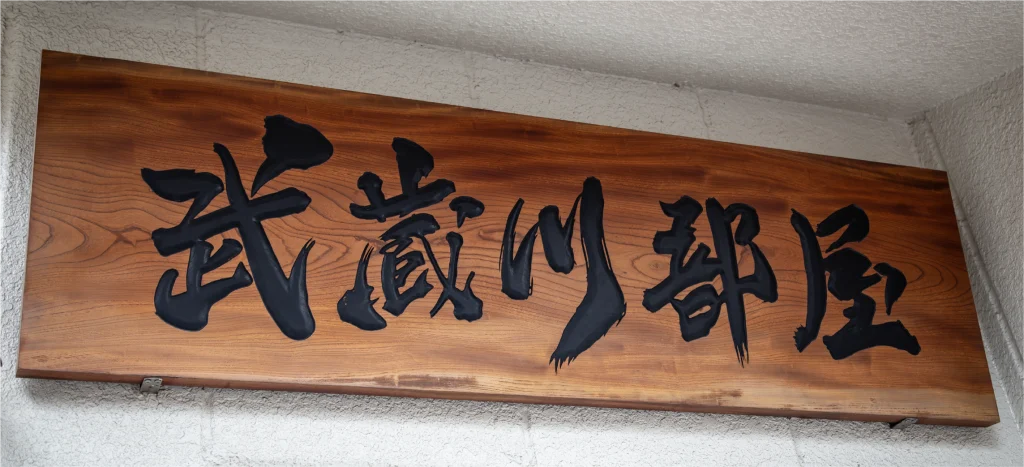 武蔵川部屋